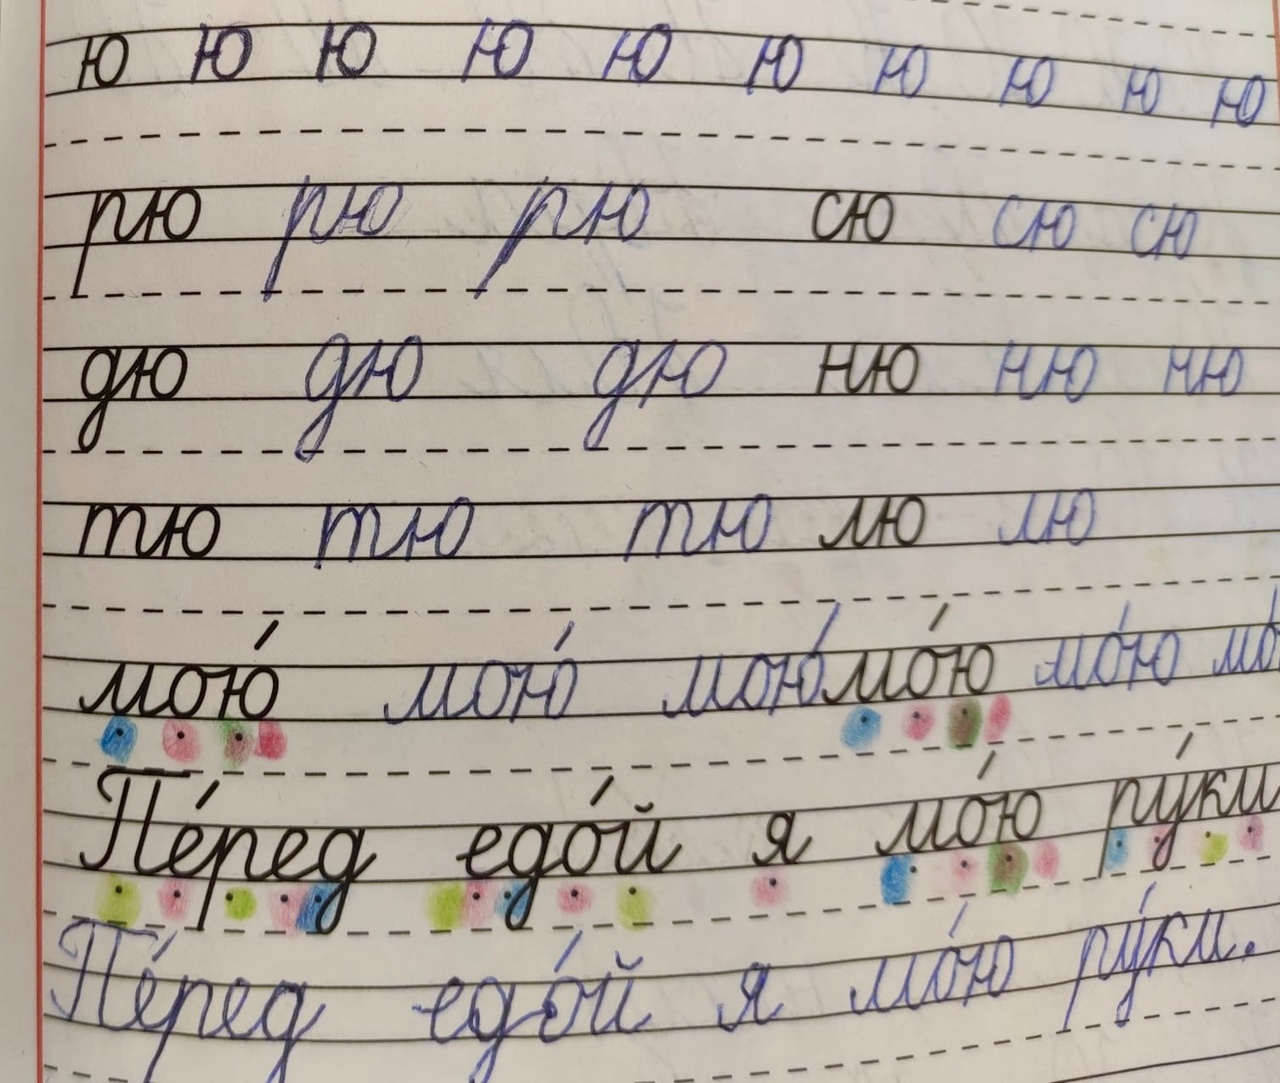 ю ю ю ю ю ю ю ю ю ю
рю рю рю сю сю сю
дю дю дю ню ню ню
тю тю тю лю лю
мою́ мою́ мою́ мо́ю мо́ю мо́
Пе́ред едо́й я мо́ю ру́ки
Пе́ред едо́й я мо́ю ру́ки.